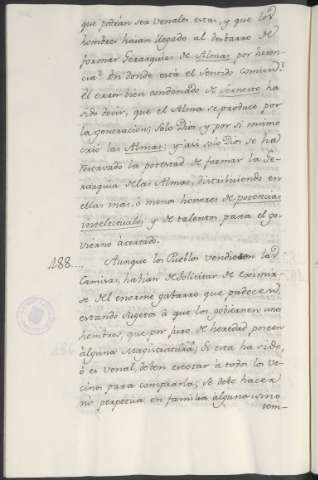 que podian ser venales esta, y que los
hombres havian llegado al desbarro de
formar Gerarquias de Almas por heren-
cia? En donde está el sentido comun?
El error bien condenado de ha
sido decir, que el Alma se produce por
la generacion; Solo Dios y por si mismo
crió las Almas; y assi solo Dios se ha
reservado la potestad de formar la Ge-
rarquia de las Almas, distribuiendo en
ellas mas, ó menos honores de potencias
intelectuales, y de talentos para el go-
vierno acertado.
188.... Aunque los Pueblos vendiesen las
Camisas, habian de solicitar de eximir-
se del enorme gabarro que padecen
estando sugetos á que los gobiernen unos
hombres, que por juro de heredad, poseen
alguna Magistratura; Si esta ha sido,
ó es venal, deben excitar á todos los ve-
cinos para comprarla; se debe hacer
no perpetua en familia alguna sino
tem-